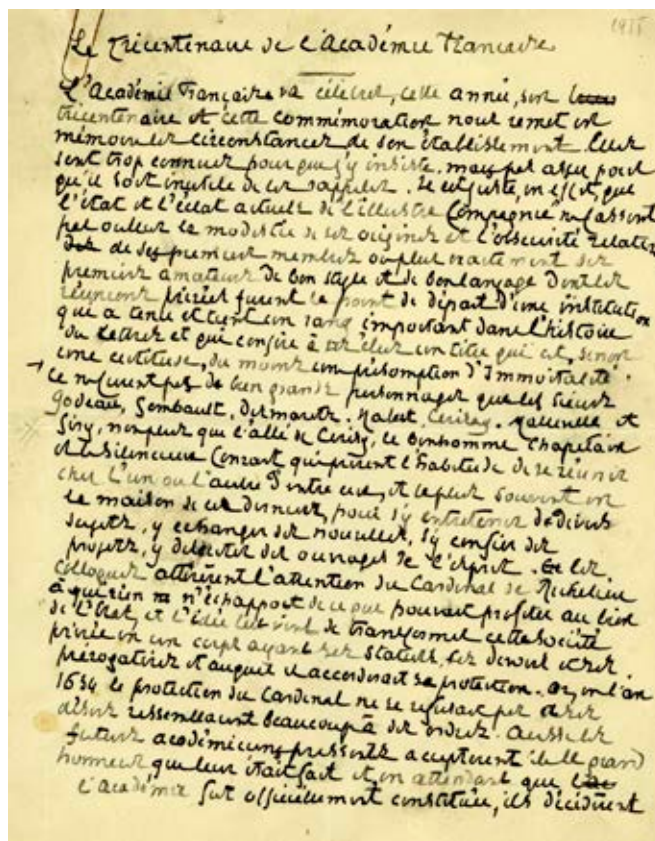 1935
Le Tricentenaire de l'Académie Française
L'Académie Française va célébrer, cette année, son
tricentenaire et cette commémoration nous remet en
mémoire les circonstances de son établissement. Elles
sont trop connues pour que j'y insiste, mais pas assez pour
qu'il soit inutile de les rappeler. Il est juste, en effet, que
l'état et l'éclat actuels de l'illustre Compagnie ne fassent
pas oublier la modestie de ses origines et l'obscurité relative
de ses premiers membres ou plus exactement des
premiers amateurs de bon style et de bon langage dont les
réunions privées furent le point de départ d'une institution
qui a tenu et tient un rang important dans l'histoire
des Lettres et qui confère à ses élus un titre qui est, sinon
une certitude, du moins une présomption d'Immortalité.
Ce ne furent pas de bien grands personnages que les sieurs
Godeau, Gombault, Desmarets, Habert, Cerizay, Malleville et
Giry, non plus que l'abbé de Cerisy, le bonhomme Chapelain
et le silencieux Conrart qui prirent l'habitude de se réunir
chez l'un ou l'autre d'entre eux, et le plus souvent en
la maison de ce dernier, pour s'y entretenir de divers
sujets, y échanger des nouvelles, s'y confier des
projets, y discuter des ouvrages de l'esprit. Ces
colloques attirèrent l'attention du Cardinal de Richelieu
à qui rien n'échappait de ce que pouvait profiter au bien
de l'Etat, et l'idée lui vint de transformer cette société
privée en un corps ayant ses statuts, ses devoirs et ses
prérogatives et auquel il accorderait sa protection. Or, en l'an
1634 la protection du Cardinal ne se refusait pas et ses
désirs ressemblaient beaucoup à des ordres. Aussi les
futurs académiciens pressentis acceptèrent-ils le grand
honneur qui leur était fait et en attendant que
l'Académie fut officiellement constituée, ils décidèrent